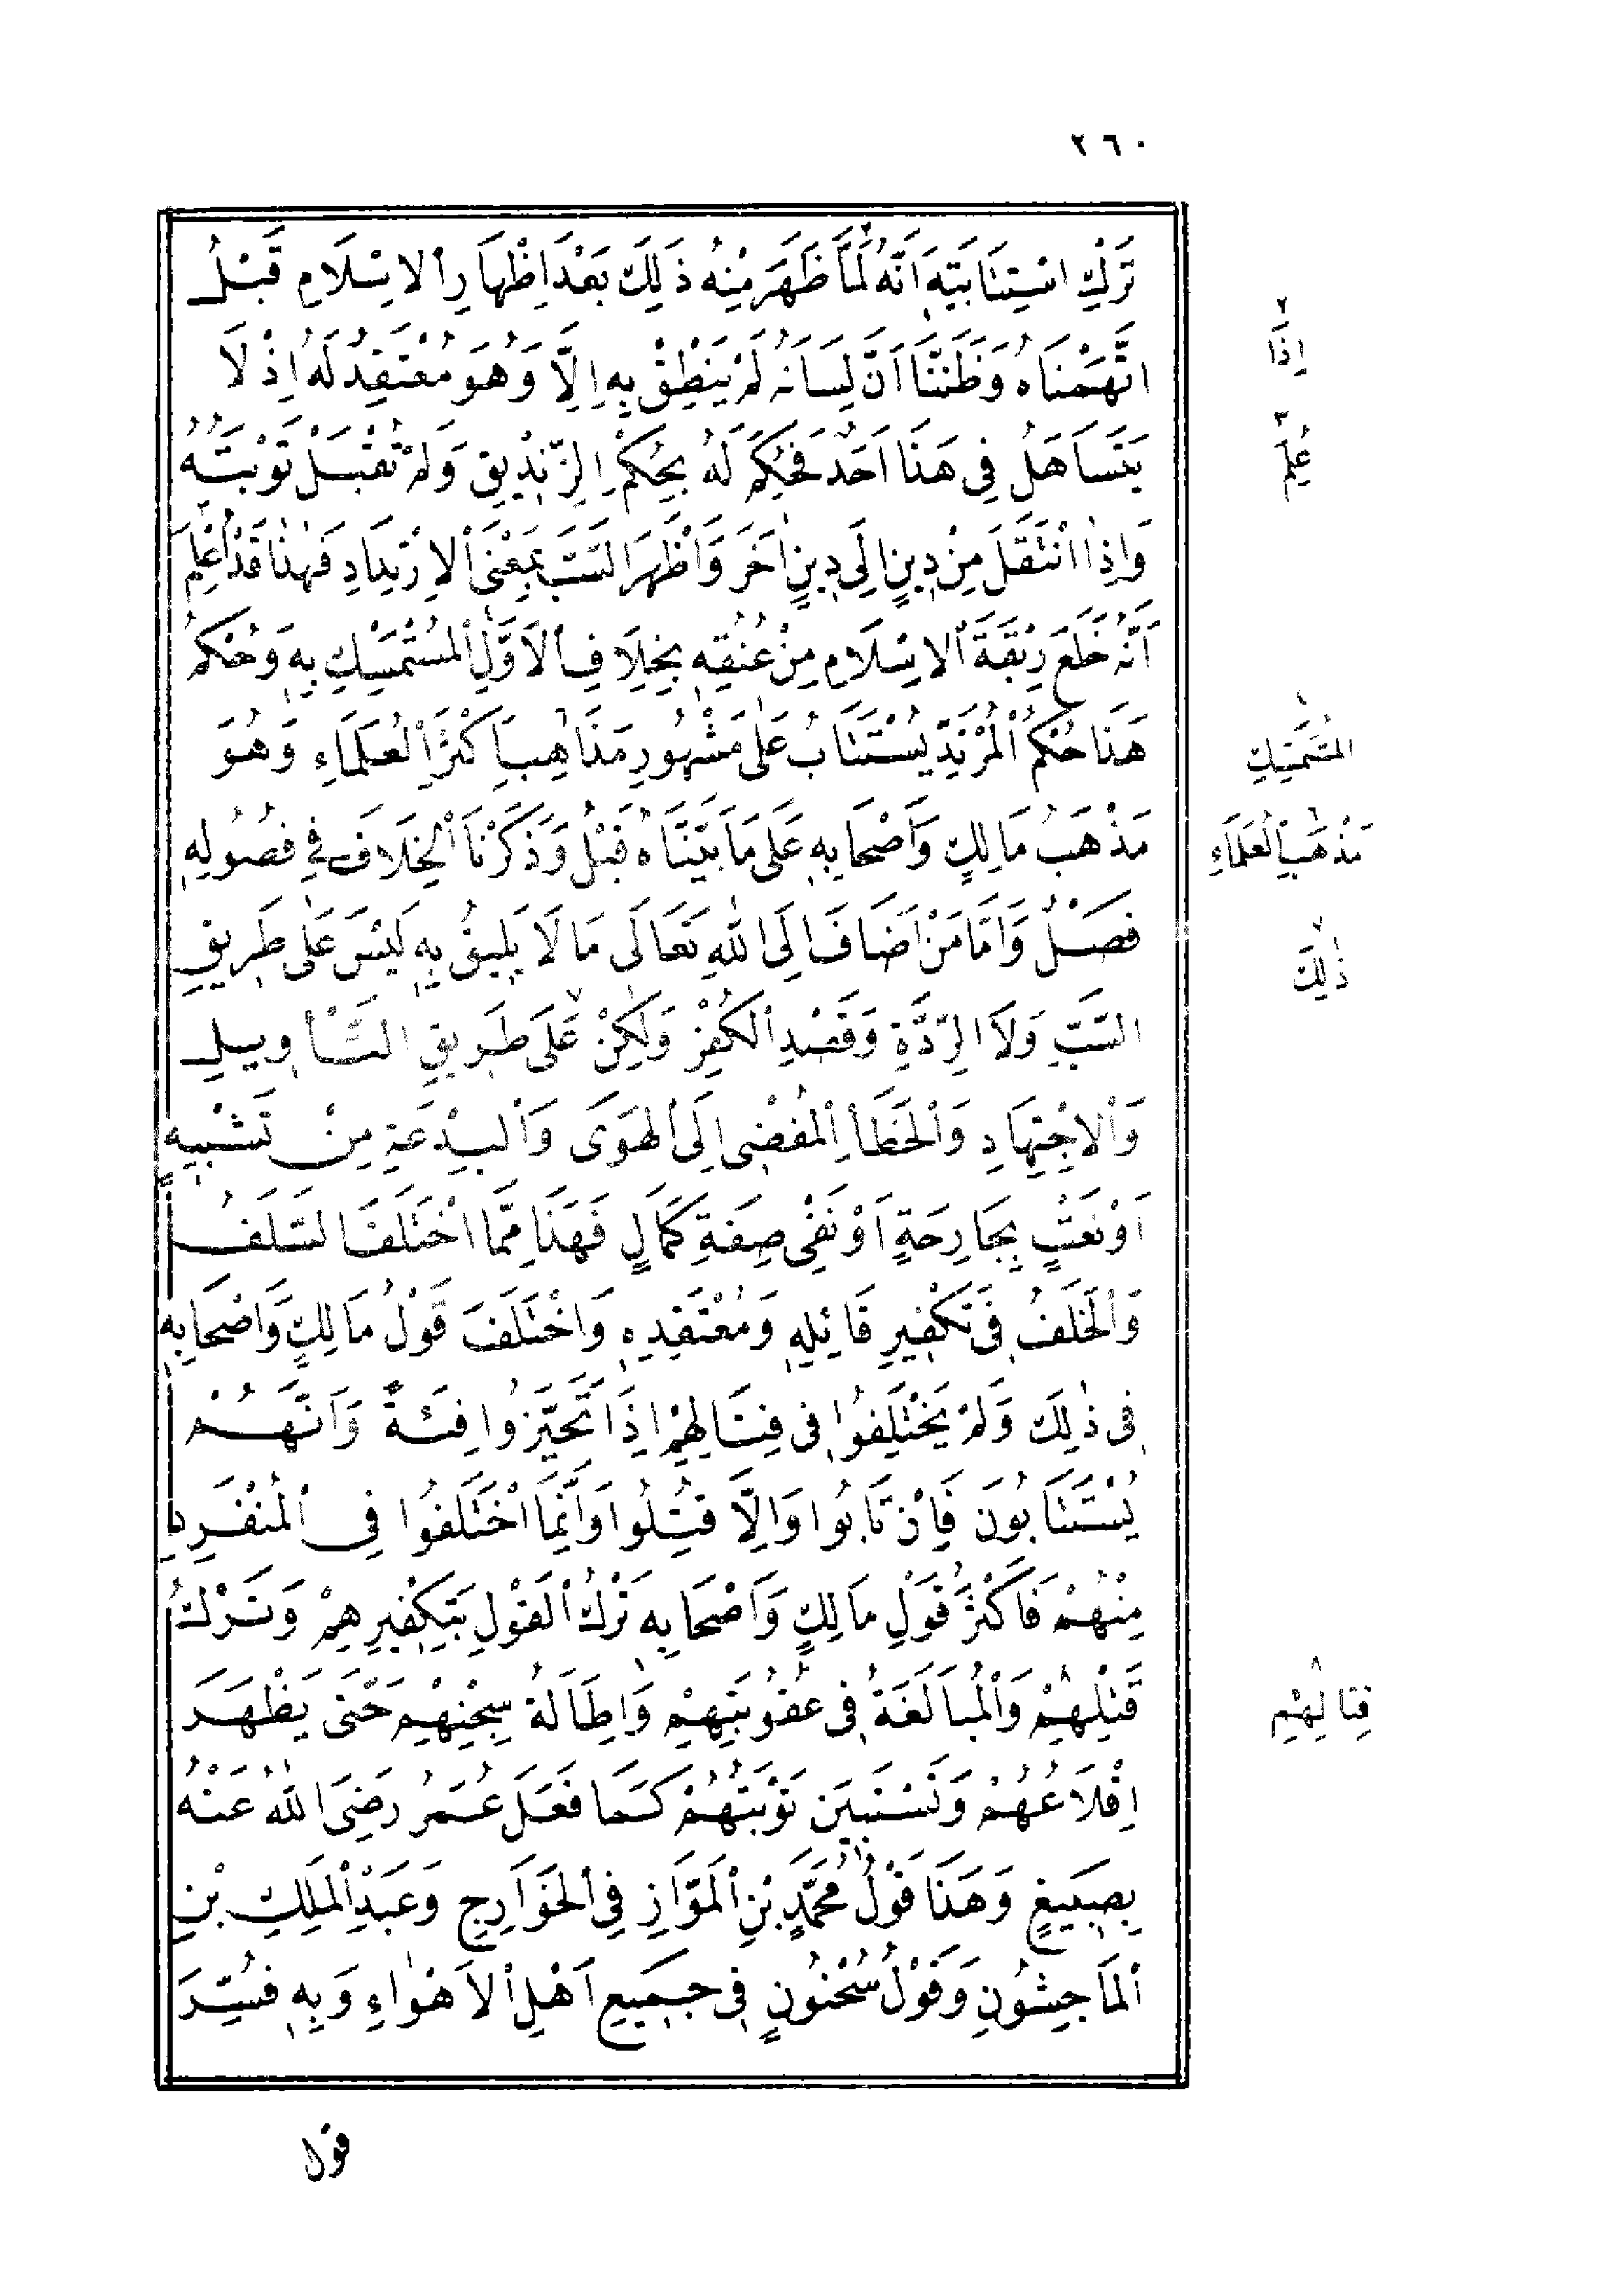 ٢٦٠
تَرْكِ اسْتِتَابَتِهِ اَنَّهُ لَمَّا ظَهَرَ مِنْهُ ذَلِكَ بَعْدَ اِظْهَارِ الْاِسْلَامِ قَبْلُ
اتَّهَمْنَاهُ وَظَنَنَّا اَنَّ لِسَانَهُ لَمْ يَنْطِقْ بِهِ اِلَّا وَهُوَ مُعْتَقِدٌ لَهُ اِذْ لَا
يَتَسَاهَلُ فِى هَذَا اَحَدٌ فَحُكِمَ لَهُ بِحُكْمِ الزِّنْدِيقِ وَلَمْ تُقْبَلْ تَوْبَتُهُ
وَاِذَا انْتَقَلَ مِنْ دِينٍ اِلَى دِينٍ اٰخَرَ وَاَظْهَرَ السَّبَّ بِمَعْنَى الْاِرْتِدَادِ فَهٰذَا قَدْ اَعْلَمَ
اَنَّهُ خَلَعَ رِبْقَةَ الْاِسْلَامِ مِنْ عُنُقِهِ بِخِلَافِ الْاَوَّلِ الْمُسْتَمْسِكِ بِهِ وَحُكْمُ
هَذَا حُكْمُ الْمُرْتَدِّ يُسْتَتَابُ عَلَى مَشْهُورِ مَذَاهِبِ اَكْثَرِ الْعُلَمَاءِ وَهُوَ
مَذْهَبُ مَالِكٍ وَاَصْحَابِهِ عَلَى مَا بَيَّنَّاهُ قَبْلُ وَذَكَرْنَا الْخِلَافَ فِى فُصُولِهِ
فَصْلٌ وَاَمَّا مَنْ اَضَافَ اِلَى اللّٰهِ تَعَالَى مَا لَا يَلِيقُ بِهِ لَيْسَ عَلَى طَرِيقِ
السَّبِّ وَلَا الرِّدَّةِ وَقَصْدِ الْكُفْرِ وَلٰكِنْ عَلَى طَرِيقِ التَّأْوِيلِ
وَالْاِجْتِهَادِ وَالْخَطَأِ الْمُفْضِى اِلَى الْهَوَى وَالْبِدْعَةِ مِنْ تَشْبِيهٍ
اَوْ نَعْتٍ بِجَارِحَةٍ اَوْ نَفْىِ صِفَةِ كَمَالٍ فَهَذَا مِمَّا اخْتَلَفَ السَّلَفُ
وَالْخَلَفُ فِى تَكْفِيرِ قَائِلِهِ وَمُعْتَقِدِهِ وَاخْتَلَفَ قَوْلُ مَالِكٍ وَاَصْحَابِهِ
فِى ذٰلِكَ وَلَمْ يَخْتَلِفُوا فِى قِتَالِهِمْ اِذَا تَحَيَّزُوا فِئَةً وَاَنَّهُمْ
يُسْتَتَابُونَ فَاِنْ تَابُوا وَاِلَّا قُتِلُوا وَاِنَّمَا اخْتَلَفُوا فِى الْمُنْفَرِدِ
مِنْهُمْ فَاَكْثَرُ قَوْلِ مَالِكٍ وَاَصْحَابِهِ تَرْكُ الْقَوْلِ بِتَكْفِيرِهِمْ وَتَرْكُ
قَتْلِهِمْ وَالْمُبَالَغَةُ فِى عُقُوبَتِهِمْ وَاِطَالَةُ سِجْنِهِمْ حَتَّى يَظْهَرَ
اِقْلَاعُهُمْ وَتَسْتَبِينَ تَوْبَتُهُمْ كَمَا فَعَلَ عُمَرُ رَضِىَ اللّٰهُ عَنْهُ
بِصَبِيغٍ وَهَذَا قَوْلُ مُحَمَّدِ بْنِ الْمَوَّازِ فِى الْخَوَارِجِ وَعَبْدِ الْمَلِكِ بْنِ
الْمَاجِشُونِ وَقَوْلُ سُحْنُونٍ فِى جَمِيعِ اَهْلِ الْاَهْوَاءِ وَبِهِ فُسِّرَ
قول
٢
اِذَا
٣
عُلِمَ
١
الْمُتَمَسِّكِ
مَذْهَبِ الْعُلَمَاءِ
٧
ذٰلِكَ
٨
قِتَالِهِمْ